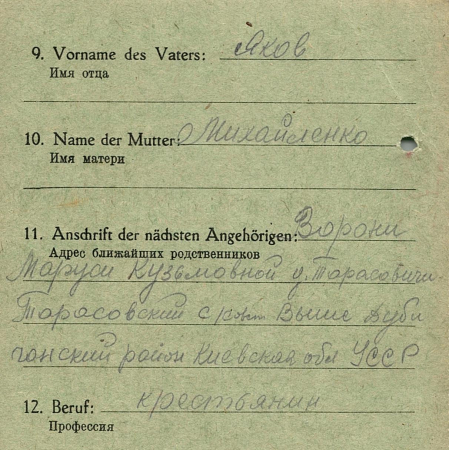 9. Vorname des Vaters: Яков
Имя отца
10. Name der Mutter: Михайленко
Имя матери
11. Anschrift der nächsten Angehörigen: Зорони
Адрес ближайших родственников
Маруси Кузьмовной Тарасовичи
Тарасовский с Выше Дуби
чанский район Киевская обл УССР
12. Beruf: крестьянин
Профессия